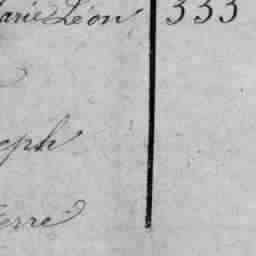 arie Léon 333
eph
erre